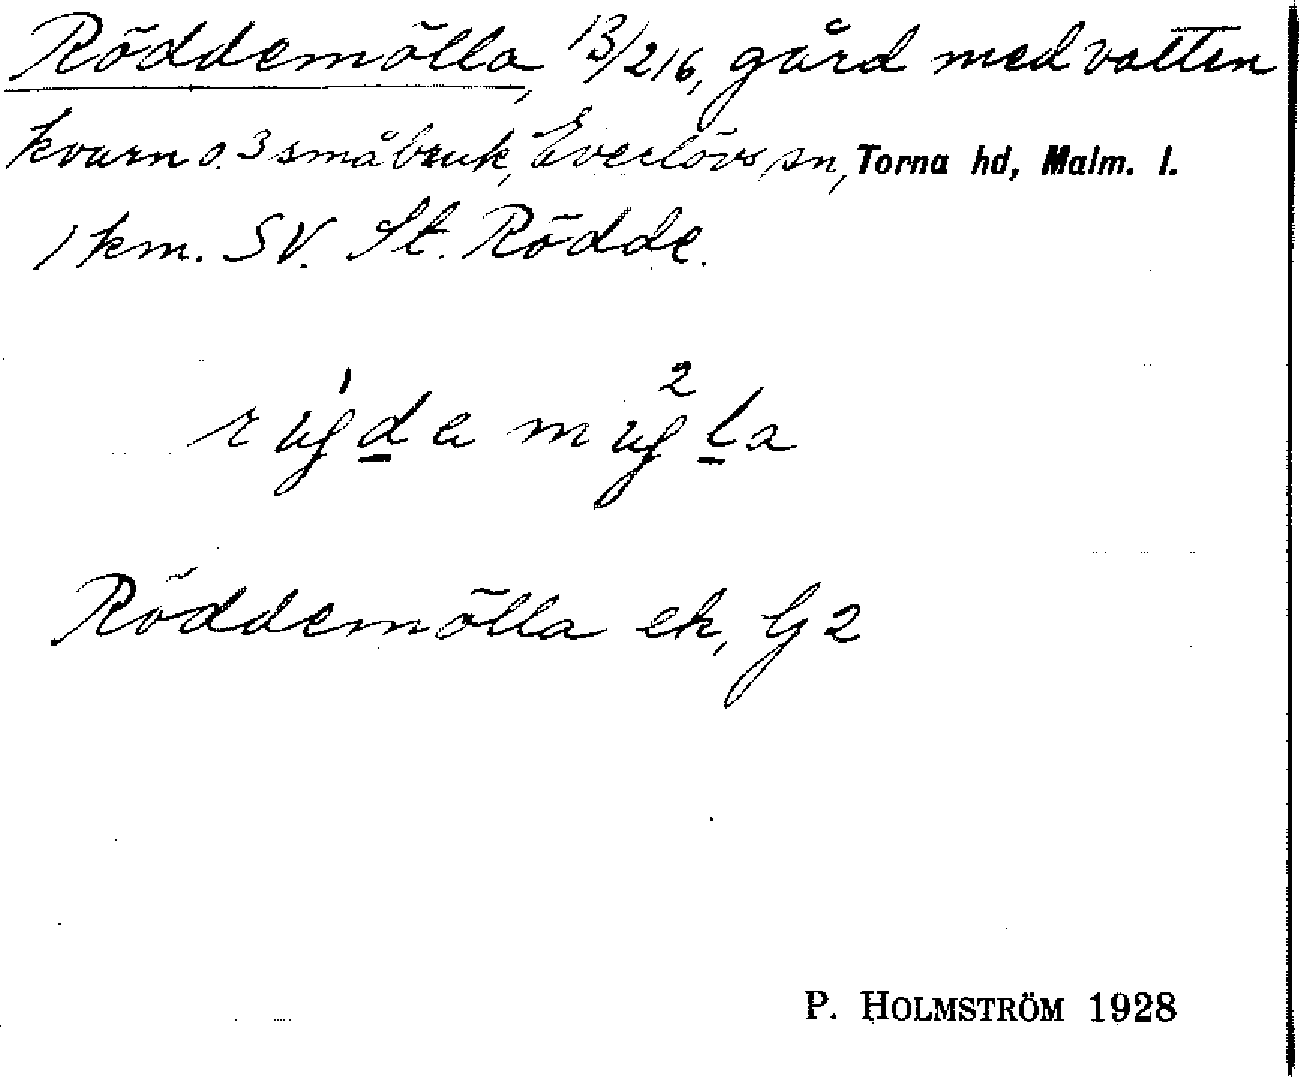 Röddemölla, 13/216, gård med vatten
kvarn o. 3 småbruk, Everlövs sn, Torna hd, Malm. l.
1 km. SV. St. Rödde.
Röddemölla ek, G2
P. HOLMSTRÖM 1928